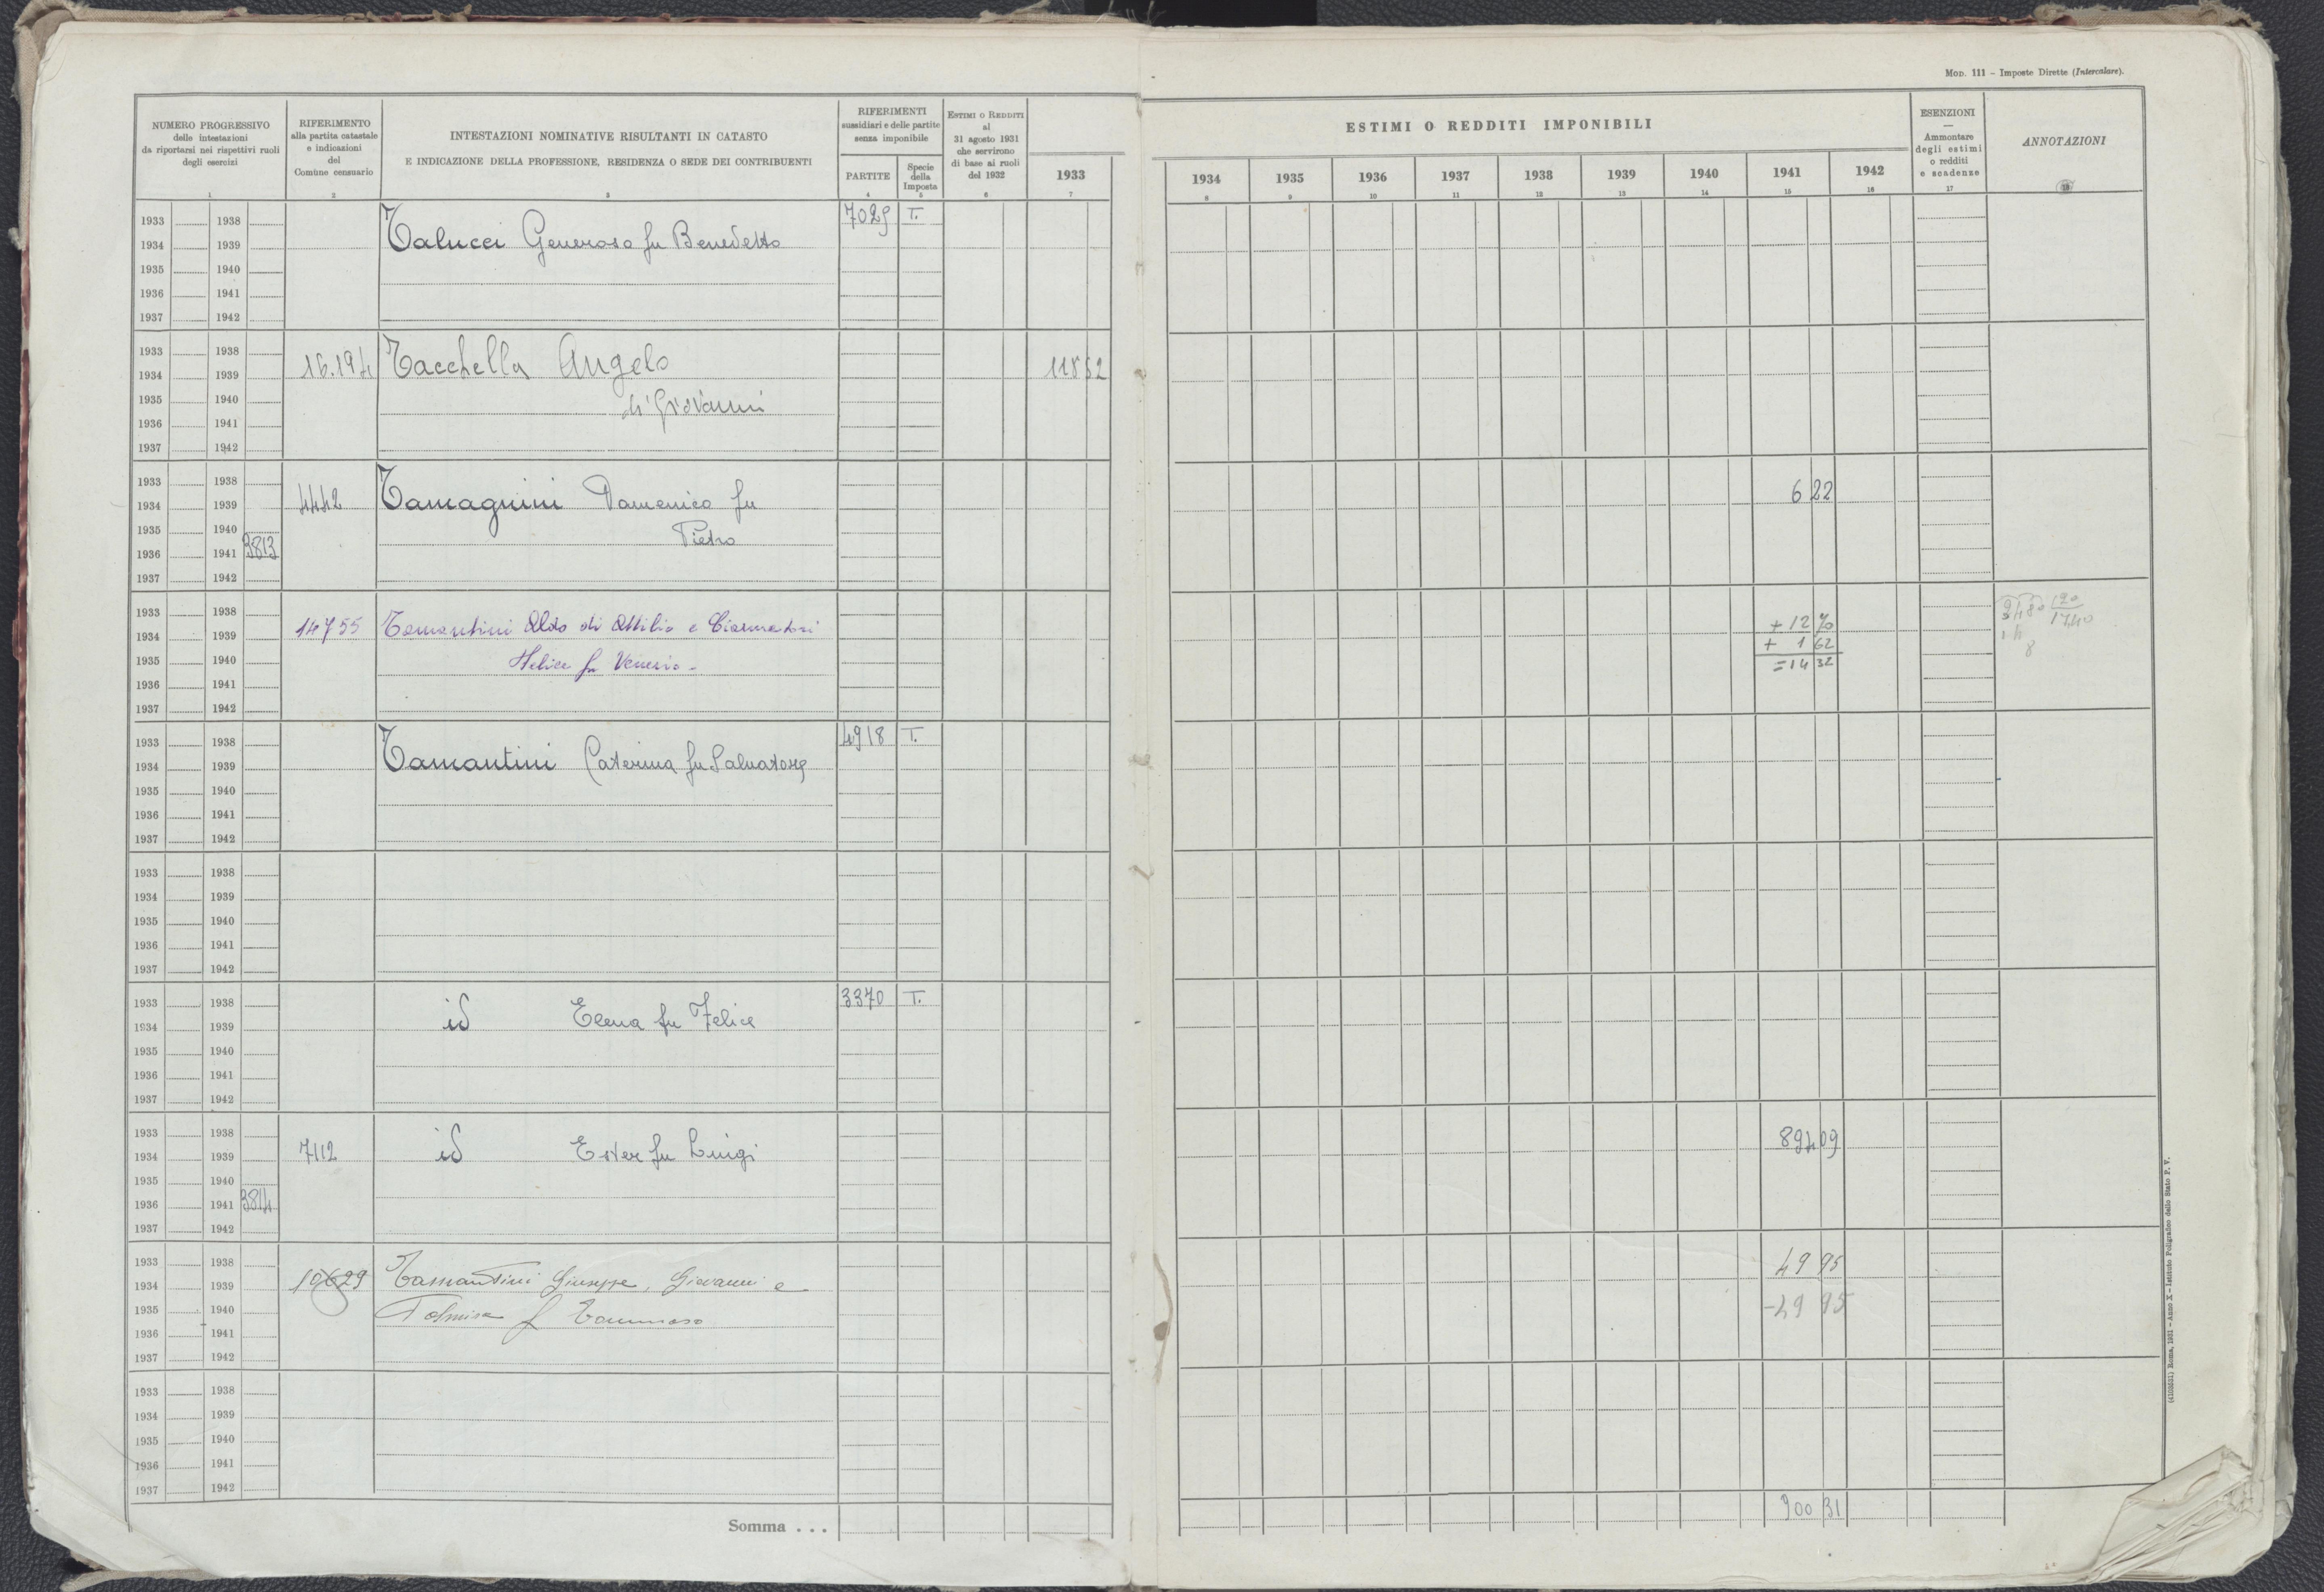 MOD. 111 - Imposte Dirette (Intercalare).
NUMERO PROGRESSIVO
delle intestazioni
da riportarsi nei rispettivi ruoli
degli esercizi
1
RIFERIMENTO
alla partita catastale
e indicazioni
del
Comune censuario
2
INTESTAZIONI NOMINATIVE RISULTANTI IN CATASTO
E INDICAZIONE DELLA PROFESSIONE, RESIDENZA O SEDE DEI CONTRIBUENTI
3
RIFERIMENTI
sussidiari e delle partite
senza imponibile
PARTITE
4
Specie
della
Imposta
5
ESTIMI O REDDITI
al
31 agosto 1931
che servirono
di base ai ruoli
del 1932
6
1933
7
ESTIMI O REDDITI IMPONIBILI
1934 1935 1936 1937 1938 1939 1940 1941 1942
8 9 10 11 12 13 14 15 16
ESENZIONI
—
Ammontare
degli estimi
o redditi
e scadenze
17
ANNOTAZIONI
18
1933 1938 7029 T.
1934 1939 Talucci Generoso fu Benedetto
1935 1940
1936 1941
1937 1942
1933 1938
1934 1939 16.194 Tacchella Angelo 118 62
1935 1940 di Giovanni
1936 1941
1937 1942
1933 1938
1934 1939 4442 Tamagnini Domenico fu 6 22
1935 1940 Pietro
1936 1941 3813
1937 1942
1933 1938
1934 1939 14755 Tamantini Aldo di Attilio e + 12 70
1935 1940 fu Venerio - + 1 62
1936 1941 = 14 32
1937 1942
3480 120
1740
8
1933 1938 4918 T.
1934 1939 Tamantini Caterina fu Salvatore
1935 1940
1936 1941
1937 1942
1933 1938
1934 1939
1935 1940
1936 1941
1937 1942
1933 1938 3370 T.
1934 1939 id Elena fu Felice
1935 1940
1936 1941
1937 1942
1933 1938
1934 1939 7112 id Ester fu Luigi 894 09
1935 1940
1936 1941 3814
1937 1942
1933 1938
1934 1939 10629 Tamantini Giuseppe, Giovanni e 49 95
1935 1940 fu Tommaso -49 95
1936 1941
1937 1942
1933 1938
1934 1939
1935 1940
1936 1941
1937 1942
Somma . . . 900 31
(4103631) Roma, 1931 - Anno X - Istituto Poligrafico dello Stato P. V.